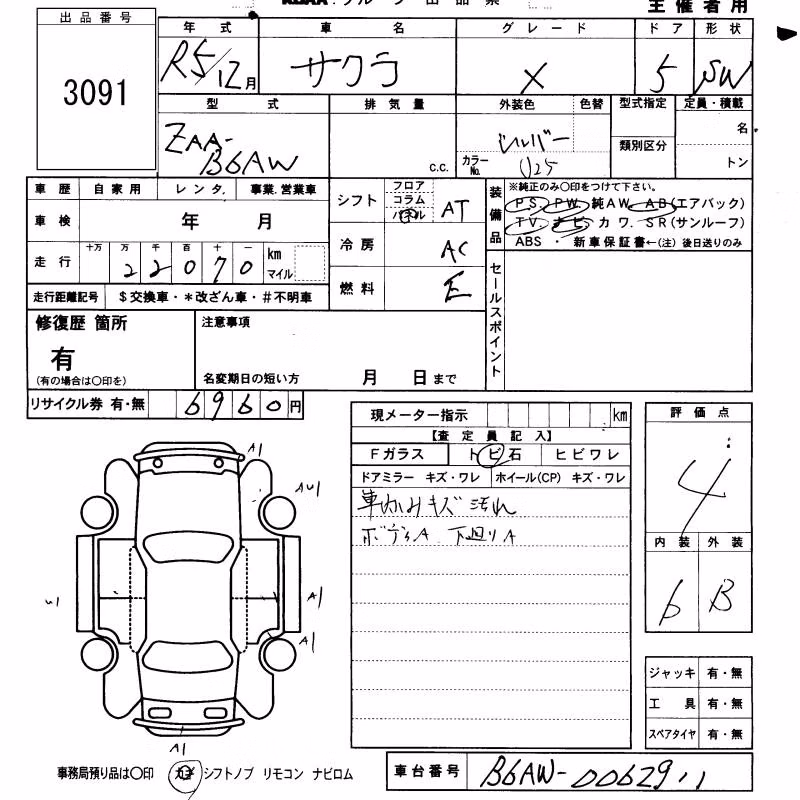 主催者用
出品番号
3091
年式 車名 グレード ドア 形状
R5/12月 サクラ X 5 SW
型式 排気量 外装色 色替 型式指定 定員・積載
ZAA-B6AW c.c. シルバー 類別区分 名
カラーNo. トン
車歴 自家用 レンタ. 事業.営業車
車検 年 月
走行 十万 万 千 百 十 一 km マイル
22070
走行距離記号 $交換車・*改ざん車・#不明車
シフト フロア コラム AT
冷房 AC
燃料 E
装備品 ※純正のみ○印をつけて下さい。
PS. PW. 純AW. AB(エアバック)
TV. ナビ カワ. SR(サンルーフ)
ABS ・ 新車保証書←(注)後日送りのみ
セールスポイント
修復歴 箇所
有
(有の場合は○印を)
注意事項
名変期日の短い方 月 日まで
リサイクル券 有・無 6960円
現メーター指示 km
【査定員記入】
Fガラス トビ石 ヒビワレ
ドアミラー キズ・ワレ ホイール(CP) キズ・ワレ
ボディA 下回りA
評価点
4
内装 外装
6 B
A1
A1
A1
A1
ジャッキ 有・無
工具 有・無
スペアタイヤ 有・無
事務局預り品は○印 シフトノブ リモコン ナビロム
車台番号 B6AW-0062911